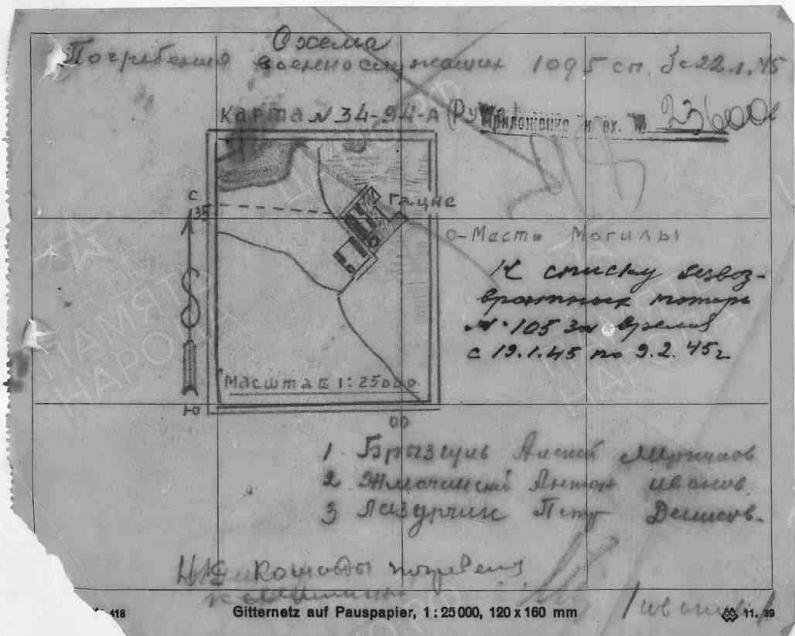 Схема
Погребения военнослужащих 1095 сп. 3с 22.1.45
Карта N 34-94-А
Приложение к вх. № 23600
Гацке
С
35
О-Место Могилы
К списку безвоз-
вратных потерь
№ 105 за время
с 19.1.45 по 9.2.45г
Масштаб 1:25000
Ю
00
1 Алексей
2 Антон Иванов
3 Лазурчик Петр Денисов.
команды погребения
418
Gitternetz auf Pauspapier, 1:25000, 120x160 mm
11. 39